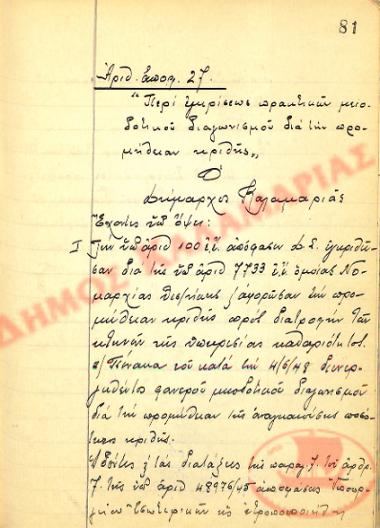 81
Αριθ. Αποφ. 27.
"Περί εγκρίσεως πρακτικών μειο-
δοτικού διαγωνισμού διά την προ-
μήθειαν κριθής"
Ο
Δήμαρχος Καλαμαριάς
Έχοντες υπ' όψει:
1 Την υπ' αριθ 100 ε.έ. απόφασιν Δ.Σ. εγκριθεί-
σαν διά της υπ' αριθ 7733 ε.έ. ομοίας Νο-
μαρχίας Θεσ/νίκης την προ-
μήθειαν κριθής προς διατροφήν των
κτηνών της υπηρεσίας καθαριότητος.
2/ Πίνακα του κατά την 4/6/48 διενερ-
γηθέντος φανερού μειοδοτικού διαγωνισμού
διά την προμήθειαν της αναγκαιούσης ποσό-
τητος κριθής.
τας διατάξεις της παραγ. 7. του άρθρ.
7. της υπ' αριθ 48976/45 αποφάσεως Υπουρ-
γείου Εσωτερικών ως ετροποποιήθη
ΔΗΜΟΣ ΚΑΛΑΜΑΡΙΑΣ